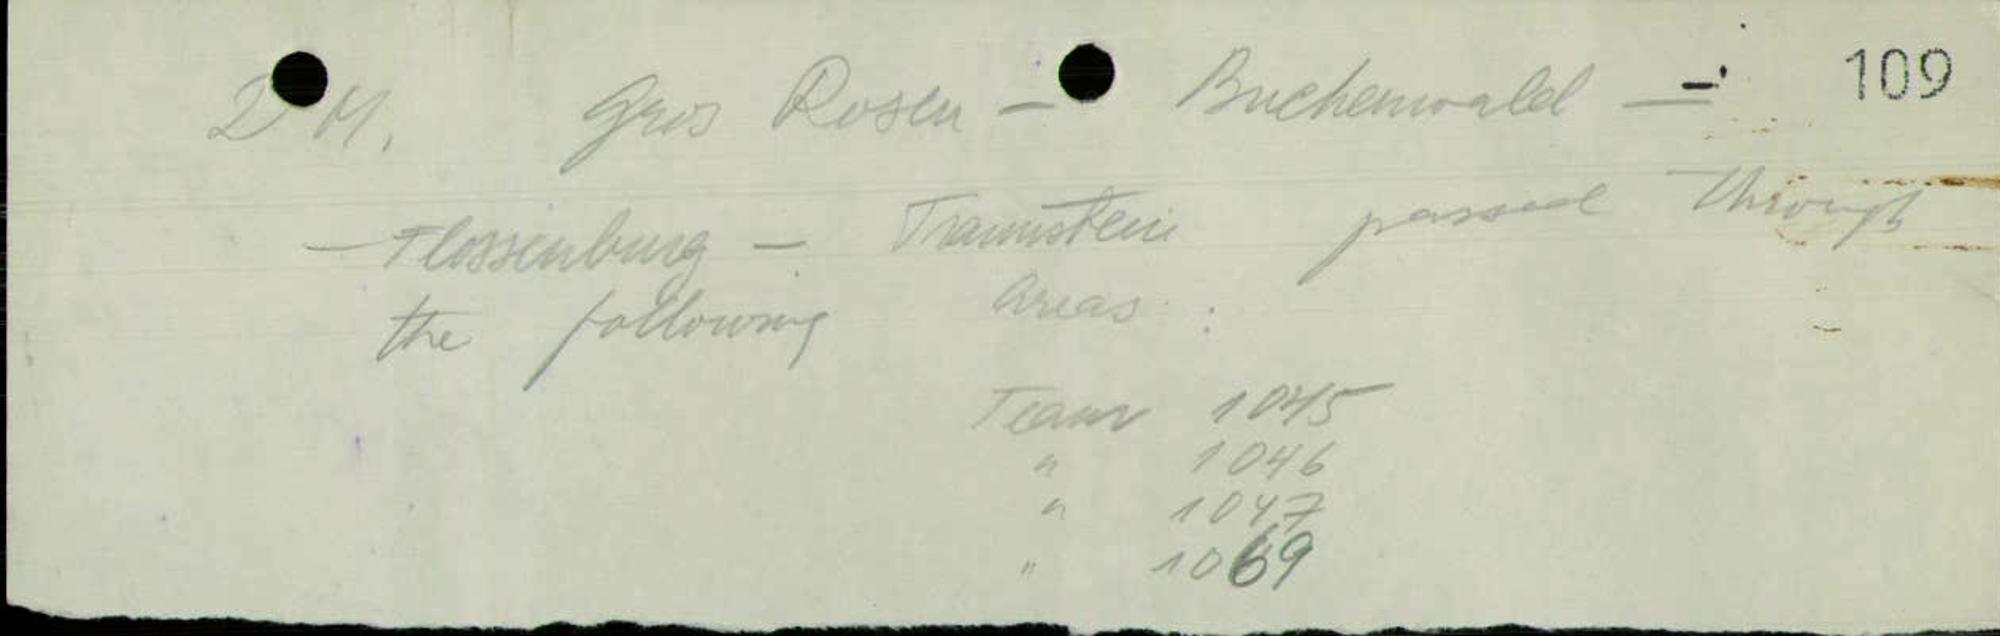 D M. Gros Rosen - Buchenwald - 109
- Flossenburg - Traunstein passed through
the following areas :
Team 1045
" 1046
" 1047
" 1069